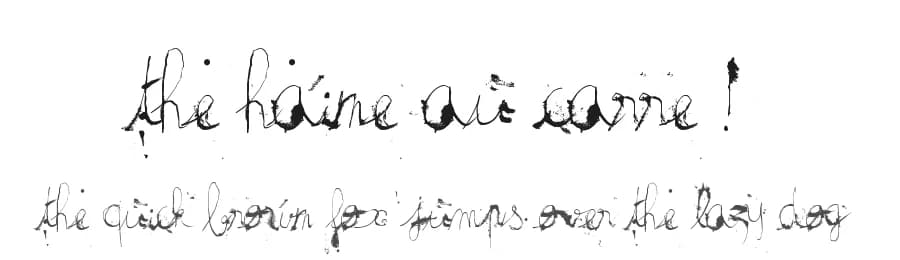 the haine au carre !
the quick brown fox jumps over the lazy dog